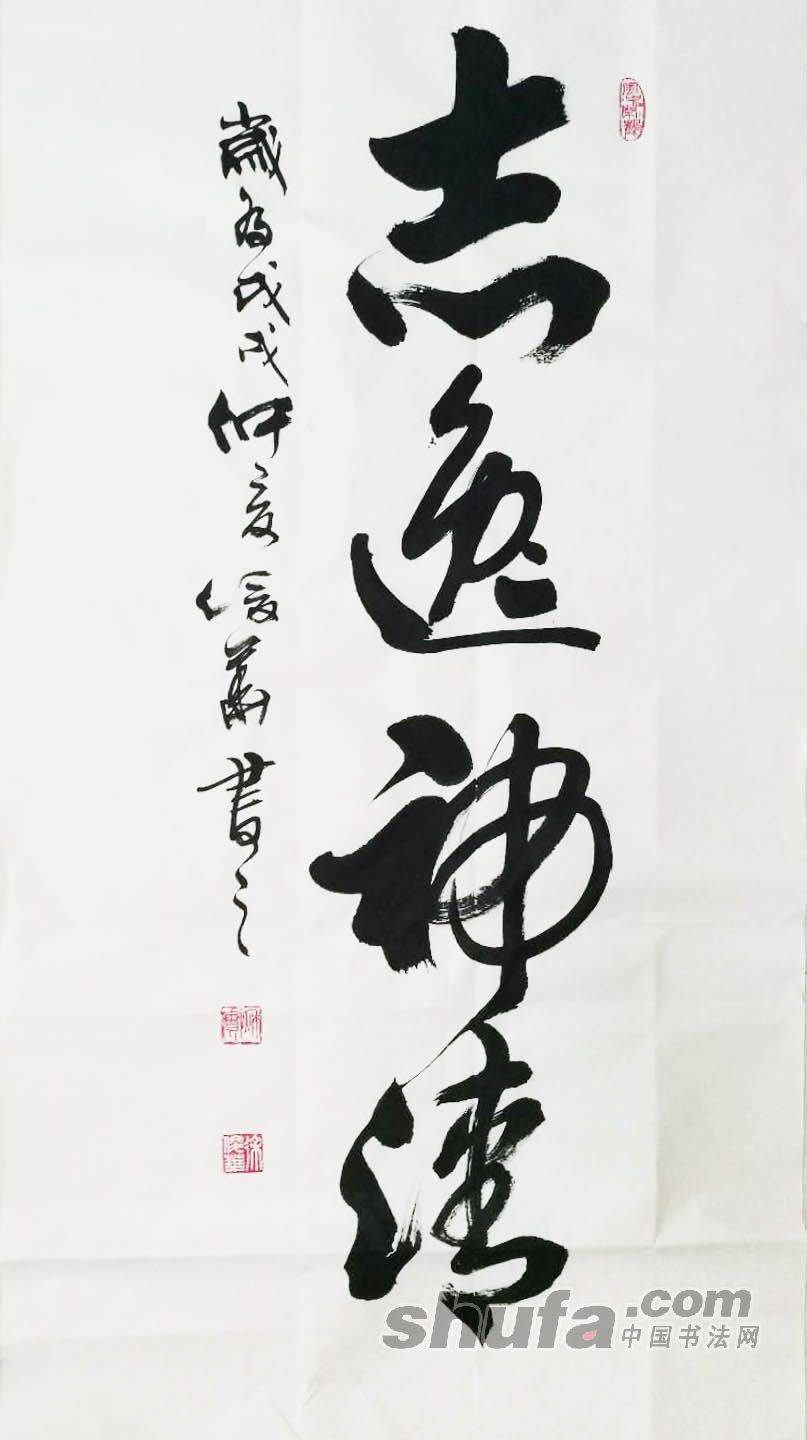 志逸神清
歲為戊戌仲夏俊華書之
shufa.com
中国书法网